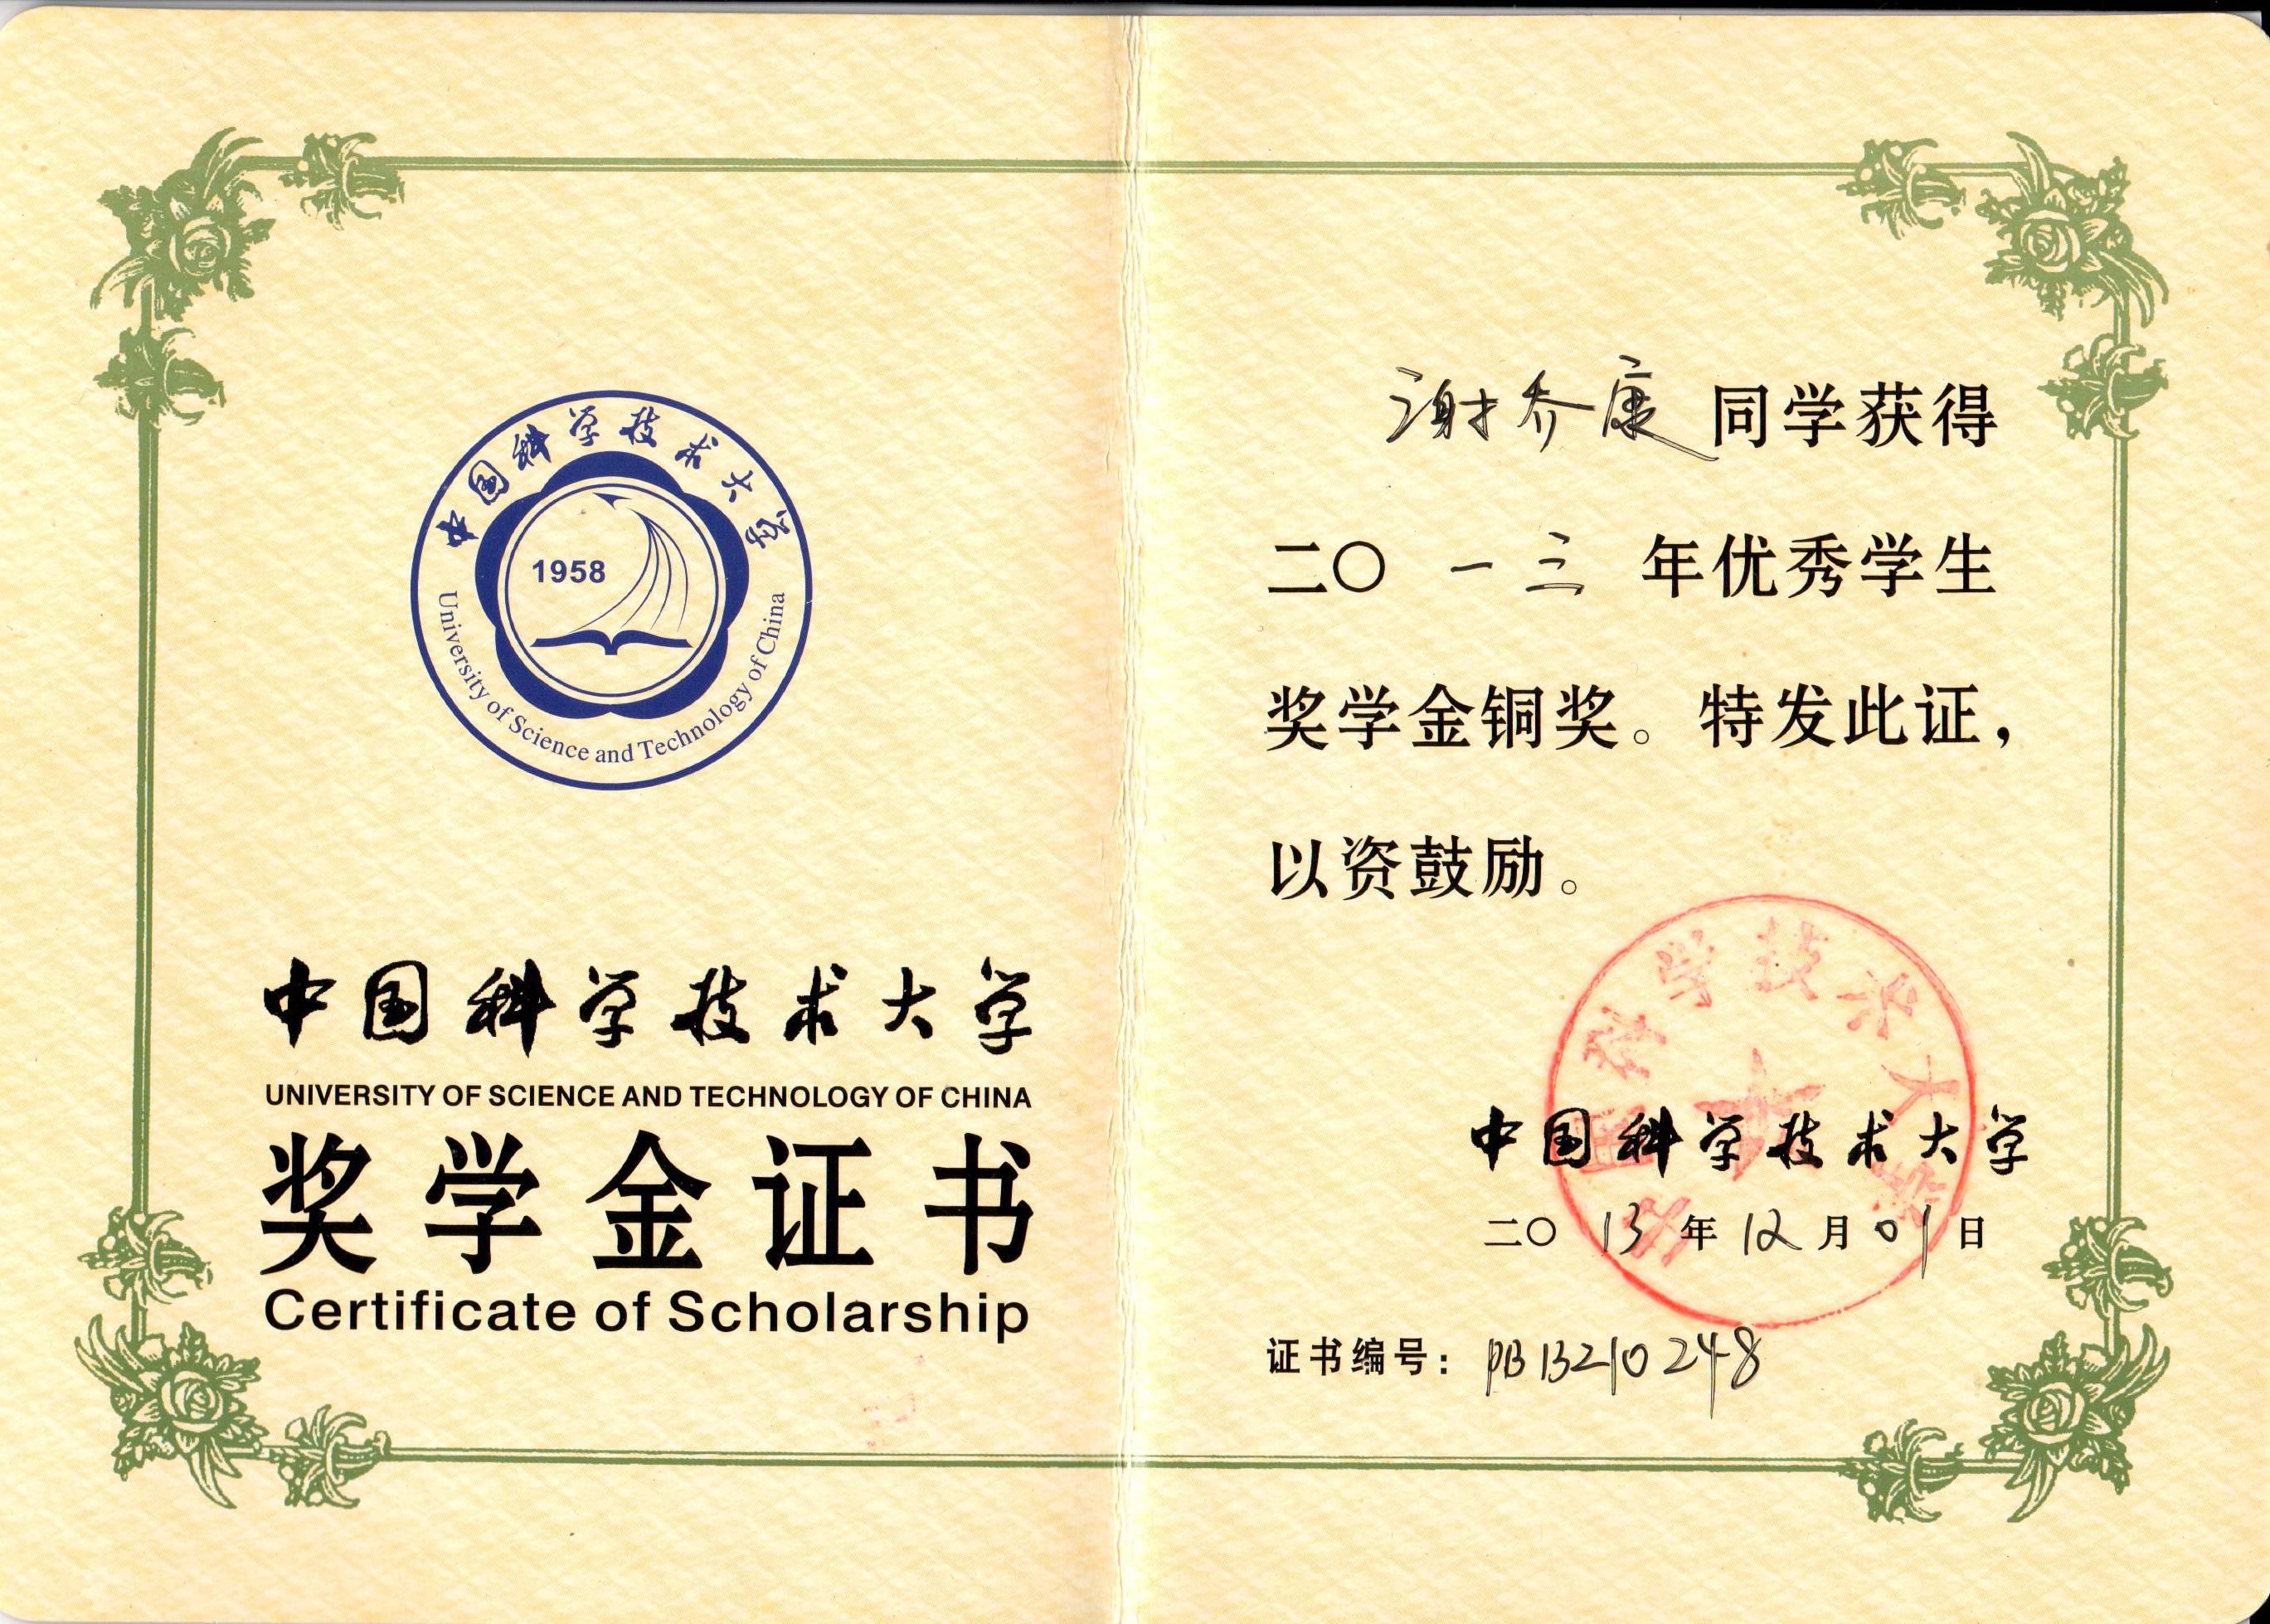 中国科学技术大学
1958
University of Science and Technology of China
中国科学技术大学
UNIVERSITY OF SCIENCE AND TECHNOLOGY OF CHINA
奖学金证书
Certificate of Scholarship
谢乔康同学获得
二〇一三年优秀学生
奖学金铜奖。特发此证，
以资鼓励。
中国科学技术大学
中国科学技术大学
二〇13年12月01日
证书编号：PB13210248